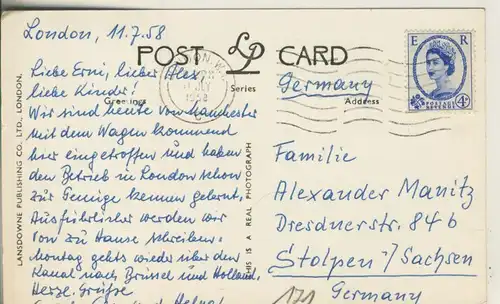 London, 11.7.58
POST LP CARD
Series
Greetings
Address
Germany
E R
POSTAGE
REVENUE
4D
Liebe Erni, lieber Alex
liebe Kinder!
Wir sind heute von Manchester
mit dem Wagen kommend
hier eingetroffen und haben
den Betrieb in London schon
zur Genüge kennen gelernt.
Ausführlicher werden wir
von zu Hause schreiben.
Montag gehts wieder über den
Kanal nach Brüssel und Holland.
Herzl. Grüße
Familie
Alexander Manitz
Dresdnerstr. 84b
Stolpen/Sachsen
Germany
171
LANSDOWNE PUBLISHING CO., LTD., LONDON.
THIS IS A REAL PHOTOGRAPH